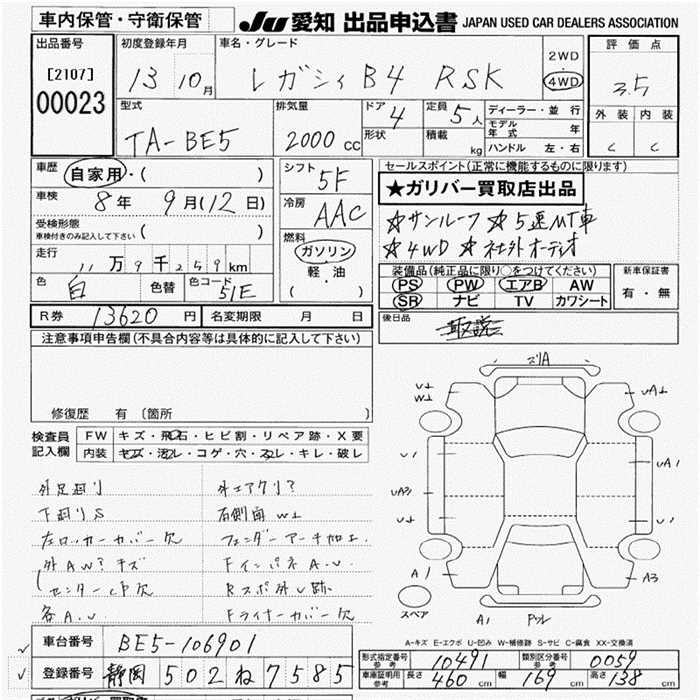 車内保管・守衛保管 Ju 愛知 出品申込書 JAPAN USED CAR DEALERS ASSOCIATION
出品番号 初度登録年月 車名・グレード 2WD 評価点
[2107] 13 10月 レガシィB4 RSK ・ 3.5
00023 4WD 外装 内装
型式 排気量 ドア 4 定員 5人 ディーラー・並行 C C
TA-BE5 2000cc 形状 積載 kg モデル年式 年
ハンドル 左・右
車歴 自家用・( ) シフト 5F セールスポイント(正常に機能するものに限ります)
車検 8年 9月(12日) 冷房 AAC ★ガリバー買取店出品
受検形態 ( ) ☆サンルーフ ☆5速MT車
車検付きのみ記入して下さい 燃料 ☆4WD ☆社外オーディオ
走行 11万9千259km ガソリン 装備品(純正品に限り○をつけてください) 新車保証書
軽・油 PS PW エアB AW 有・無
色 白 色替 色コード 51E ( ・ ) SR ナビ TV カワシート
R券 13620円 名変期限 月 日 後日品 取説
注意事項申告欄(不具合内容等は具体的に記入して下さい)
修復歴 有 〔箇所 〕
検査員 FW キズ・飛石・ヒビ割・リペア跡・X要
記入欄 内装 キズ・汚レ・コゲ・穴・スレ・キレ・破レ
外足廻り
下廻りS 右側面 W⊥
左ロッカーカバー欠 フェンダーアーチ加工
外AW? キズ Fインパネ A.U
R スポ外し跡
各A.U Fライナーカバー欠
ズリA
U⊥ UA⊥
W⊥
U1 UA1
UA3 U1
U⊥
A1 A3
スペア A1
A-キズ E-エクボ U-凹み W-補修跡 S-サビ C-腐食 XX-交換済
車台番号 BE5-106901
登録番号 静岡 502 ね 7585
形式指定番号 参考 10491 類別区分番号 参考 0059
車庫証明用 参考 長さ 460cm 幅 169cm 高さ 138cm